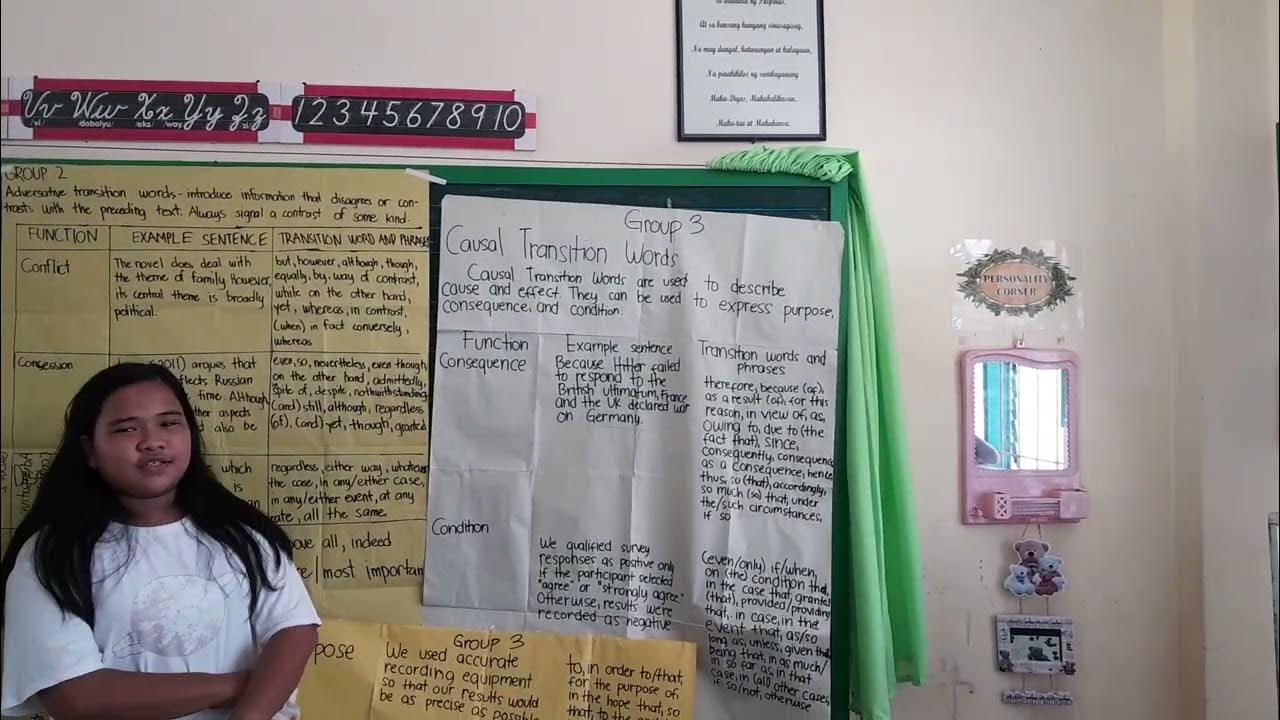 Maka-Diyos, Makakalikasan,
Maka-tao at Makabansa.
At sa bansang kanyang sinasagisag,
Na may dangal, katarungan at kalayaan,
Na pinakikilos ng sambayanang
Vv Ww Xx Yy Zz
/vi/ /dobolyu/ /eks/ /way/ /zi/
1 2 3 4 5 6 7 8 9 10
GROUP 2
Adversative transition words - introduce information that disagrees or con-
trasts with the preceding text. Always signal a contrast of some kind.
FUNCTION
EXAMPLE SENTENCE
TRANSITION WORD AND PHRASE
Conflict
The novel does deal with
the theme of family. However,
its central theme is broadly
political.
but, however, although, though,
equally, by way of contrast,
while on the other hand,
yet, whereas, in contrast,
(when) in fact conversely,
whereas
Concession
2011) argues that
Russian
time. Although
aspects
also be
even, so, nevertheless, even though,
on the other hand, admittedly,
spite of, despite, notwithstanding
(and) still, although, regardless
(of), (and) yet, though, granted
which
is
regardless, either way, whatever
the case, in any/either case,
in any/either event, at any
rate, all the same.
all, indeed
most important
Group 3
Causal Transition Words
Causal Transition Words are used to describe
cause and effect. They can be used to express purpose,
consequence, and condition.
Function
Example sentence
Transition words and
phrases
Consequence
Because Hitler failed
to respond to the
British ultimatum, France
and the UK declared war
on Germany.
therefore, because (of),
as a result (of), for this
reason, in view of, as,
owing to, due to (the
fact that), since,
consequently, consequence
as a consequence, hence
thus, so (that), accordingly,
so much (so) that, under
the/such circumstances,
if so
Condition
We qualified survey
responses as positive only
if the participant selected
"agree" or "strongly agree"
Otherwise, results were
recorded as negative.
(even/only) if/when,
on (the) condition that,
in the case that, granted
(that), provided/providing
that, in case, in the
event that, as/so
long as, unless, given that
being that, in as much/
in so far as, in that
case, in (all) other cases,
if so/not, otherwise
Group 3
pose
We used accurate
recording equipment
so that our results would
be as precise as possible
to, in order to/that,
for the purpose of,
in the hope that, so
that, to the
PERSONALITY
CORNER